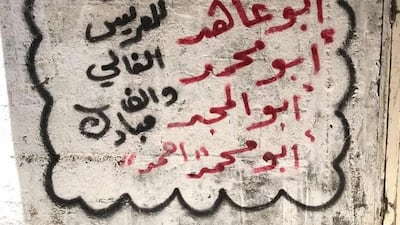 أبو عاهد
أبو محمد
أبو المجد
أبو محمد "احمد"
للعريس
الغالي
والف
مبارك